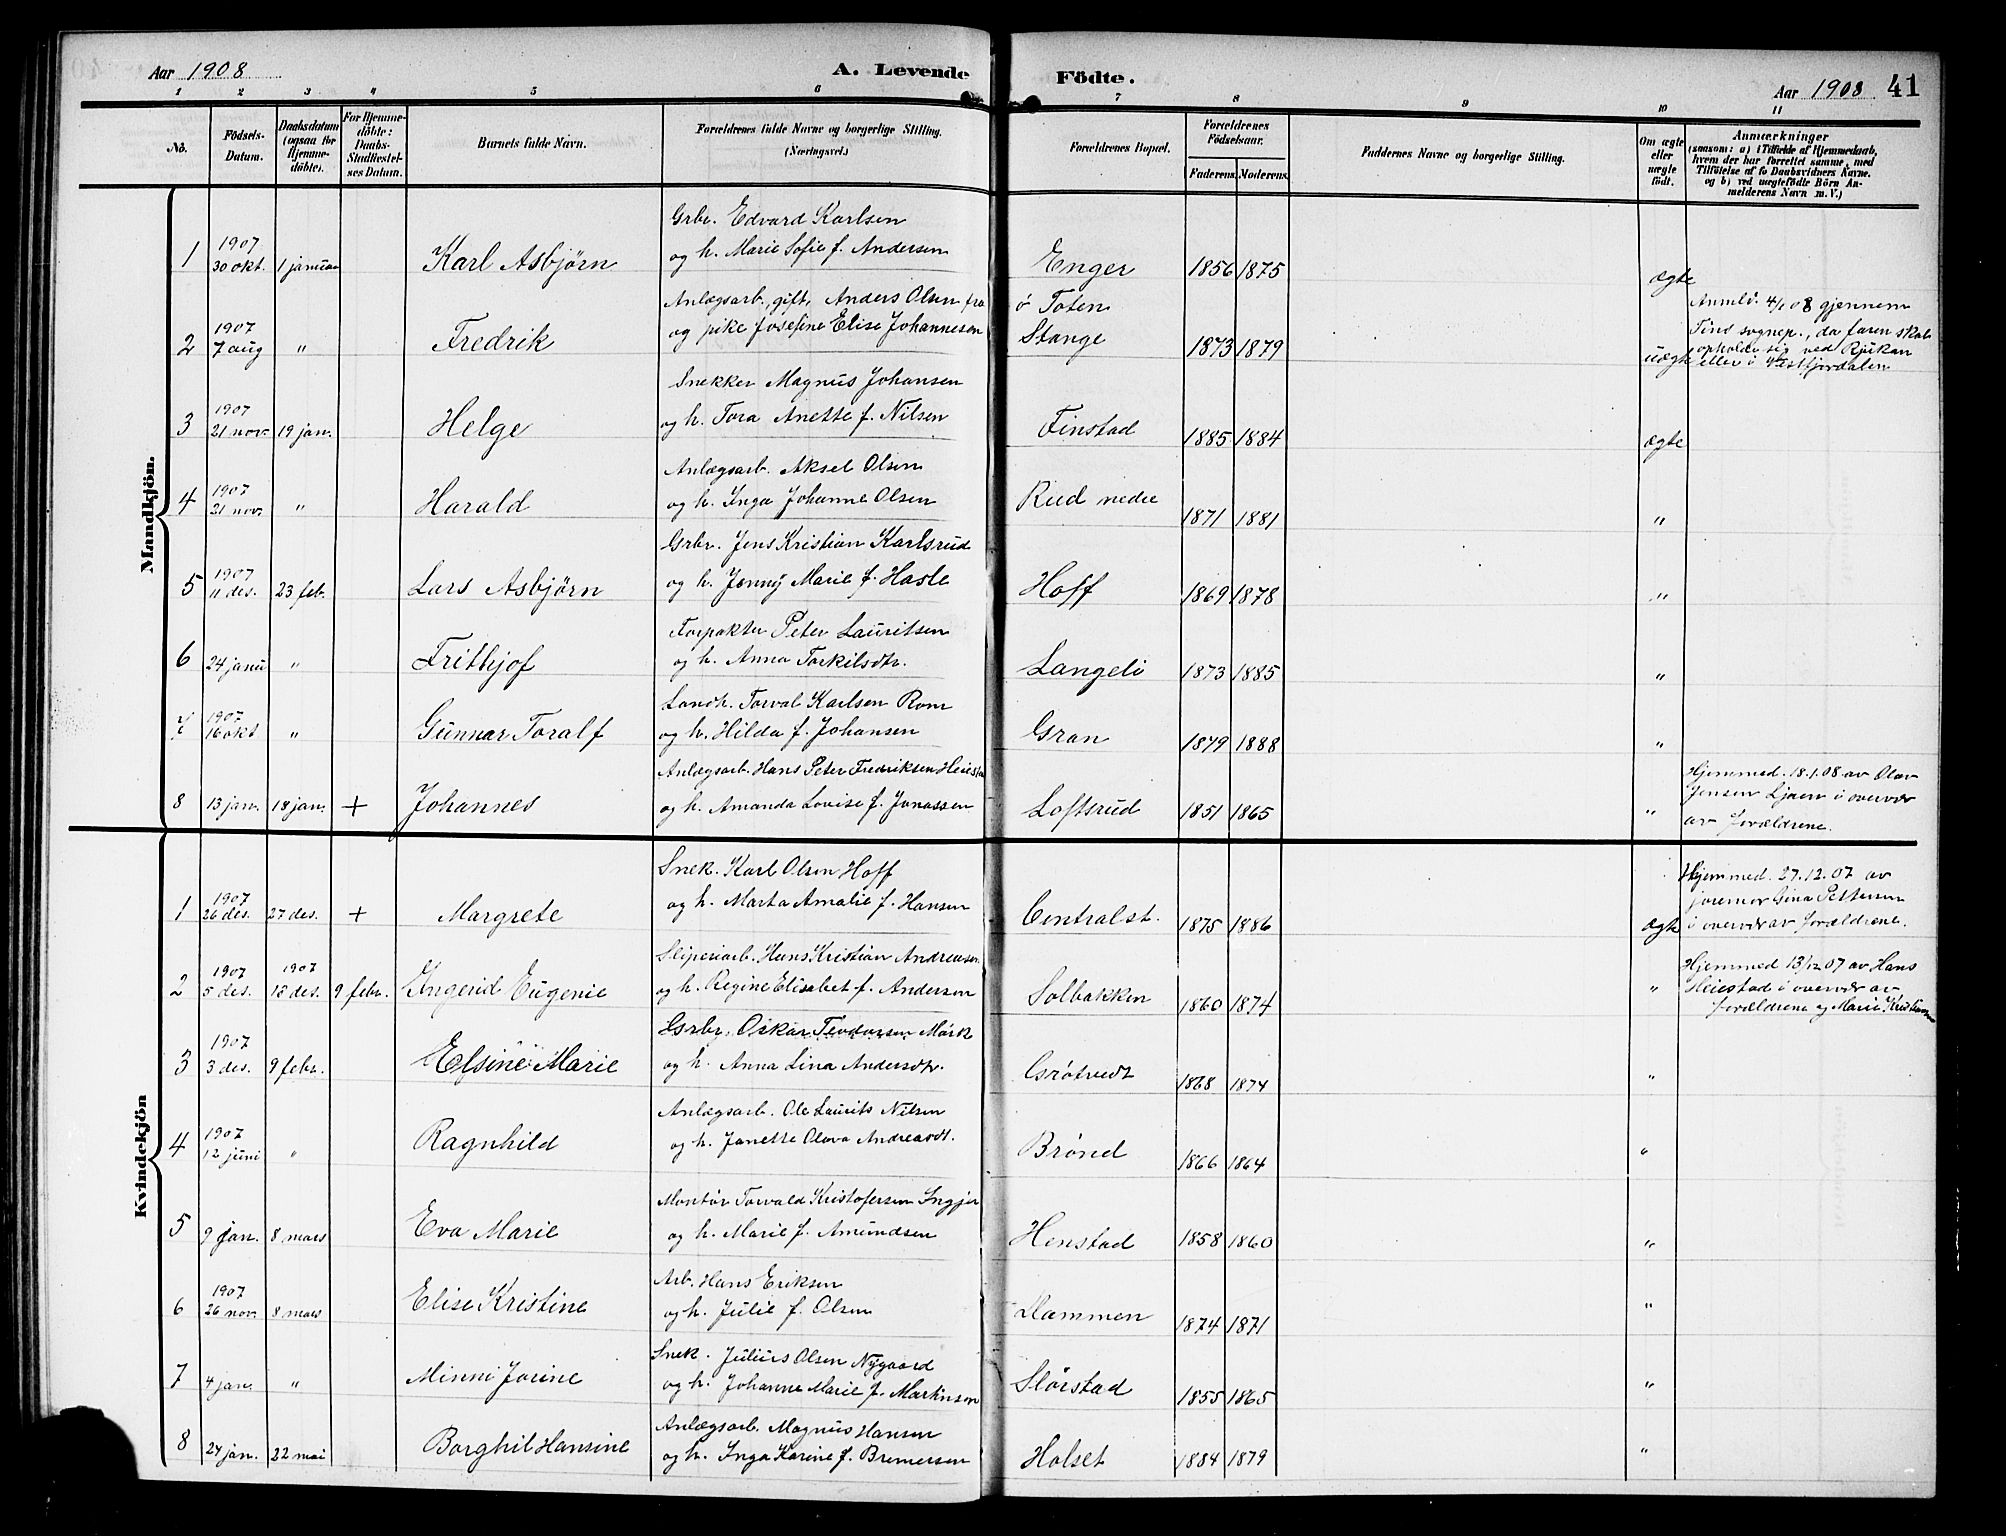 Aar 1908
A. Levende Födte.
Aar 1908 41
1 2 3 4 5 6 7 8 9 10 11
No.
Födsels-Datum.
Daabsdatum (ogsaa for Hjemmedöbte).
For Hjemmedöbte: Daabs-Stadfæstelses Datum.
Barnets fulde Navn.
Forældrenes fulde Navne og borgerlige Stilling. (Næringsvei.)
Forældrenes Bopæl.
Forældrenes Födselsaar. Faderens. Moderens.
Faddernes Navne og borgerlige Stilling.
Om ægte eller uægte födt.
Anmærkninger
(saasom: a) i Tilfælde af Hjemmedaab,
hvem der har forrettet samme, med
Tilföielse af to Daabsvidners Navne.
og b) ved uægtefödte Börn An-
melderens Navn m. V.)
Mandkjön.
Grbr. Edvard Karlsen
1 1907 30 okt. 1 januar Karl Asbjørn og h. Marie Sofie f. Andersen Enger 1856 1875 ægte
Anlægsarb., gift, Anders Olsen fra ø Toten
2 1907 7 aug " Fredrik og pike Josefine Elise Johannesen Stange 1873 1879 uægte
Anmeld. 4/1 08 gjennem
Tinds sognep., da faren skal
opholde sig ved Rjukan
eller i Vestfjordalen
Snekker Magnus Johansen
3 1907 21 nov. 19 jan. Helge og h. Tora Anette f. Nilsen Finstad 1885 1884 ægte
Anlægsarb. Aksel Olsen
4 1907 21 nov. " Harald og h. Inga Johanne Olsen Rud nedre 1871 1881 "
Grbr. Jens Kristian Karlsrud
5 1907 11 des. 23 feb. Lars Asbjørn og h. Jenny Marie f. Hasle Hoff 1869 1878 "
Forpakter Peter Lauritsen
6 24 janu " Frithjof og h. Anna Torkilsdtr. Langeli 1873 1885 "
Landh. Torval Karlsen Rom
7 1907 16 okt " Gunnar Toralf og h. Hilda f. Johansen Gran 1879 1888 "
Anlægsarb. Hans Peter Fredriksen Heiestad
8 13 jan. 18 jan. + Johannes og h. Amanda Lovise f. Jonassen Loftsrud 1851 1865 "
Hjemmed. 18.1.08 av Olav
Jensen Ljøen i overvær
av forældrene.
Kvindekjön
Snek. Karl Olsen Hoff
1 1907 26 des. 27 des. + Margrete og h. Marta Amalie f. Hansen Centralst. 1875 1886 ægte
Hjemmed. 27.12.07 av
joremor Gina Pettersen
i overvær av forældrene.
Sliperiarb. Hans Kristian Andreasen
2 1907 5 des. 1907 13 des. 9 febr. Ingerid Eugenie og h. Regine Elisabet f. Andersen Solbakken 1860 1874 "
Hjemmed 13/12 07 av Hans
Heiestad i overvær av
forældrene og Marie Kristiansen
Grbr. Oskar Teodorsen Mørk
3 1907 3 des. 9 febr. Elsine Marie og h. Anna Lina Andersdtr. Grøtvedt 1868 1874 "
Anlægsarb. Ole Laurits Nilsen
4 1907 12 juni " Ragnhild og h. Janette Olava Andreasdt. Brønd 1866 1864 "
Montør Torvald Kristofersen Ingjer
5 9 jan. 8 mars Eva Marie og h. Marie f. Amundsen Henstad 1858 1860 "
Arb. Hans Eriksen
6 1907 26 nov. 8 mars Elise Kristine og h. Julie f. Olsen Hammen 1874 1871 "
Snek. Julius Olsen Nygaard
7 4 jan. " Minni Jorine og h. Johanne Marie f. Martinsen Slørstad 1855 1865 "
Anlægsarb. Magnus Hansen
8 24 jan. 22 mai Borghil Hansine og h. Inga Karine f. Bremersen Holset 1884 1879 "